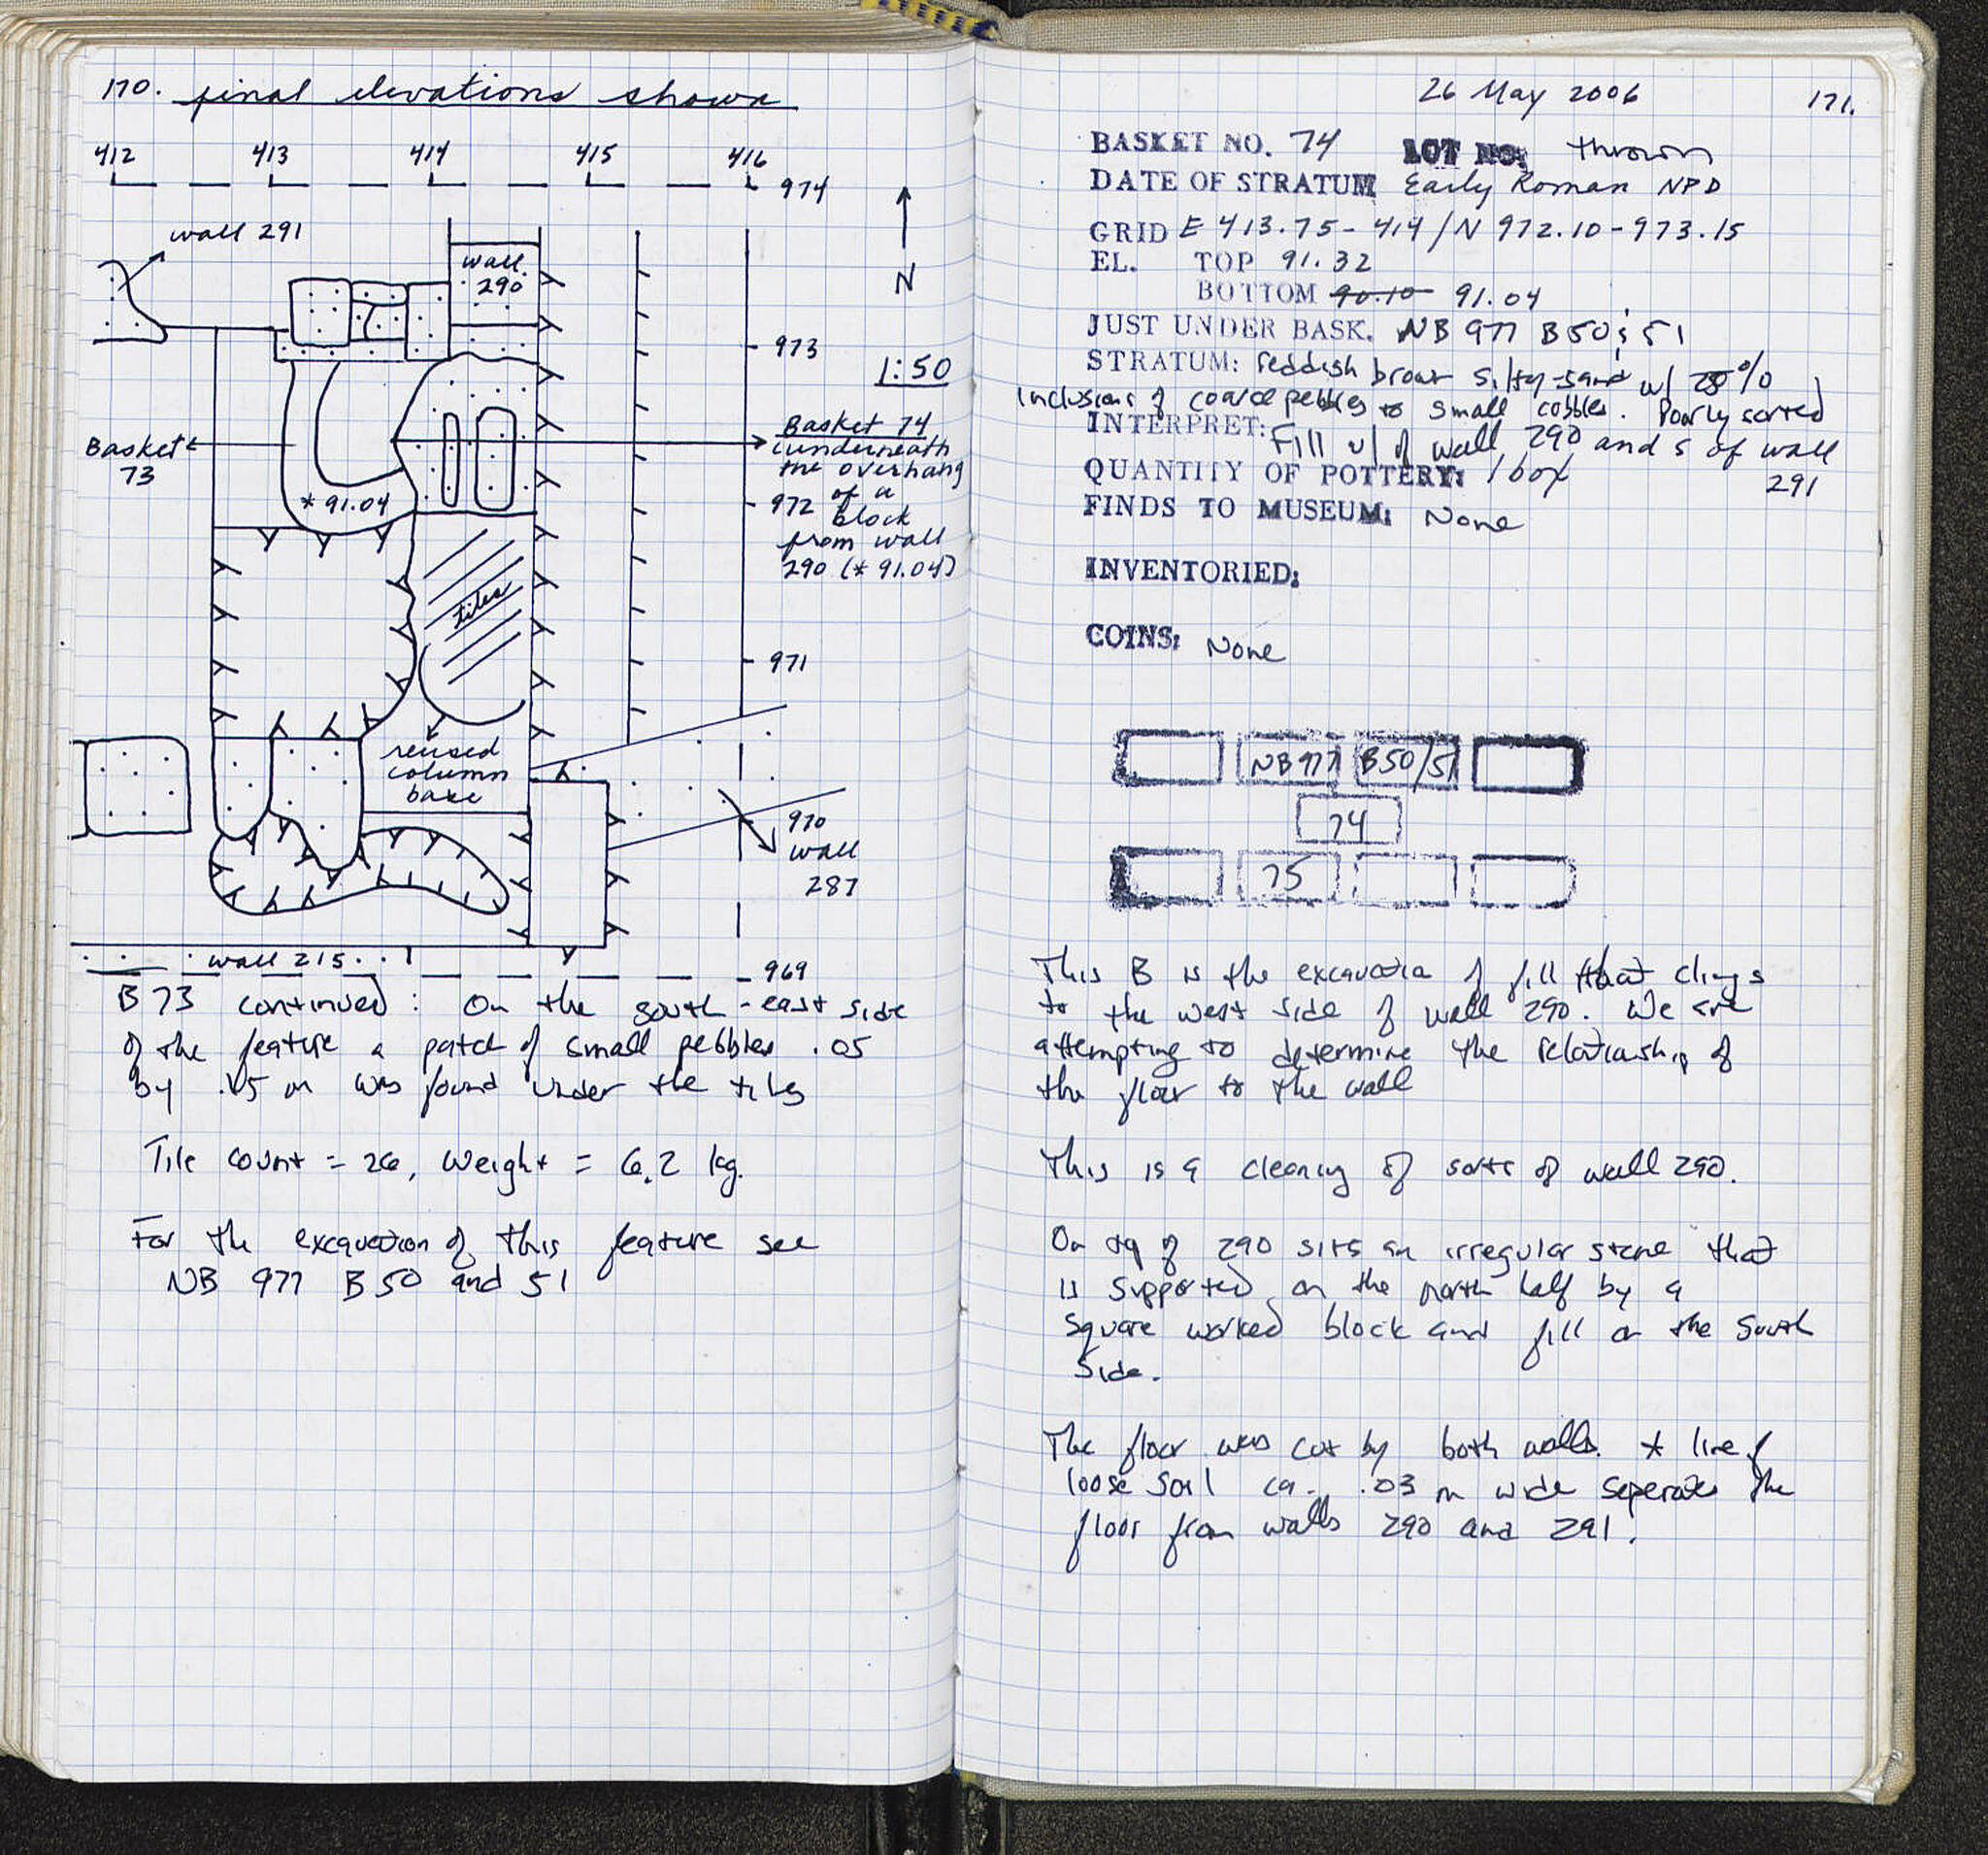 170. final elevations shown
412 413 414 415 416
974
wall 291
wall 290
N
973
1:50
Basket 73
Basket 74
(underneath
the overhang
of a
block
from wall
290 (* 91.04)
972
* 91.04
tiles
971
reused
column
base
970
wall
287
wall 215
969
B 73 continued: On the south-east side
of the feature a patch of small pebbles .05
by .15 m was found under the tiles
Tile count = 26, weight = 6.2 kg.
For the excavation of this feature see
NB 977 B 50 and 51
26 May 2006 171.
BASKET NO. 74 LOT NO: thrown
DATE OF STRATUM Early Roman NPD
GRID E 413.75-414/N 972.10-973.15
EL. TOP 91.32
BOTTOM 90.10 91.04
JUST UNDER BASK. NB 977 B50; 51
STRATUM: reddish brown silty-sand w/ %
Inclusions of coarse pebbles to small cobbles. Poorly sorted
INTERPRET: Fill w/ of wall 290 and S of wall
291
QUANTITY OF POTTERY: 1 box
FINDS TO MUSEUM: None
INVENTORIED:
COINS: None
NB 977 B50/51
74
75
This B is the excavation of fill that clings
to the west side of wall 290. We are
attempting to determine the relationship of
the floor to the wall
This is a cleaning of sorts of wall 290.
On top of 290 sits an irregular stone that
is supported on the north half by a
square worked block and fill on the south
side.
The floor was cut by both walls. * line of
loose soil ca. .03 m wide seperates the
floor from walls 290 and 291.